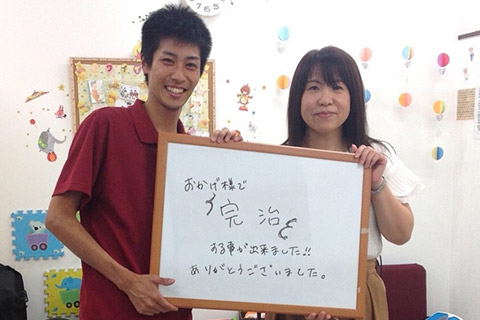 おかげ様で
完治
する事が出来ました!!
ありがとうございました。